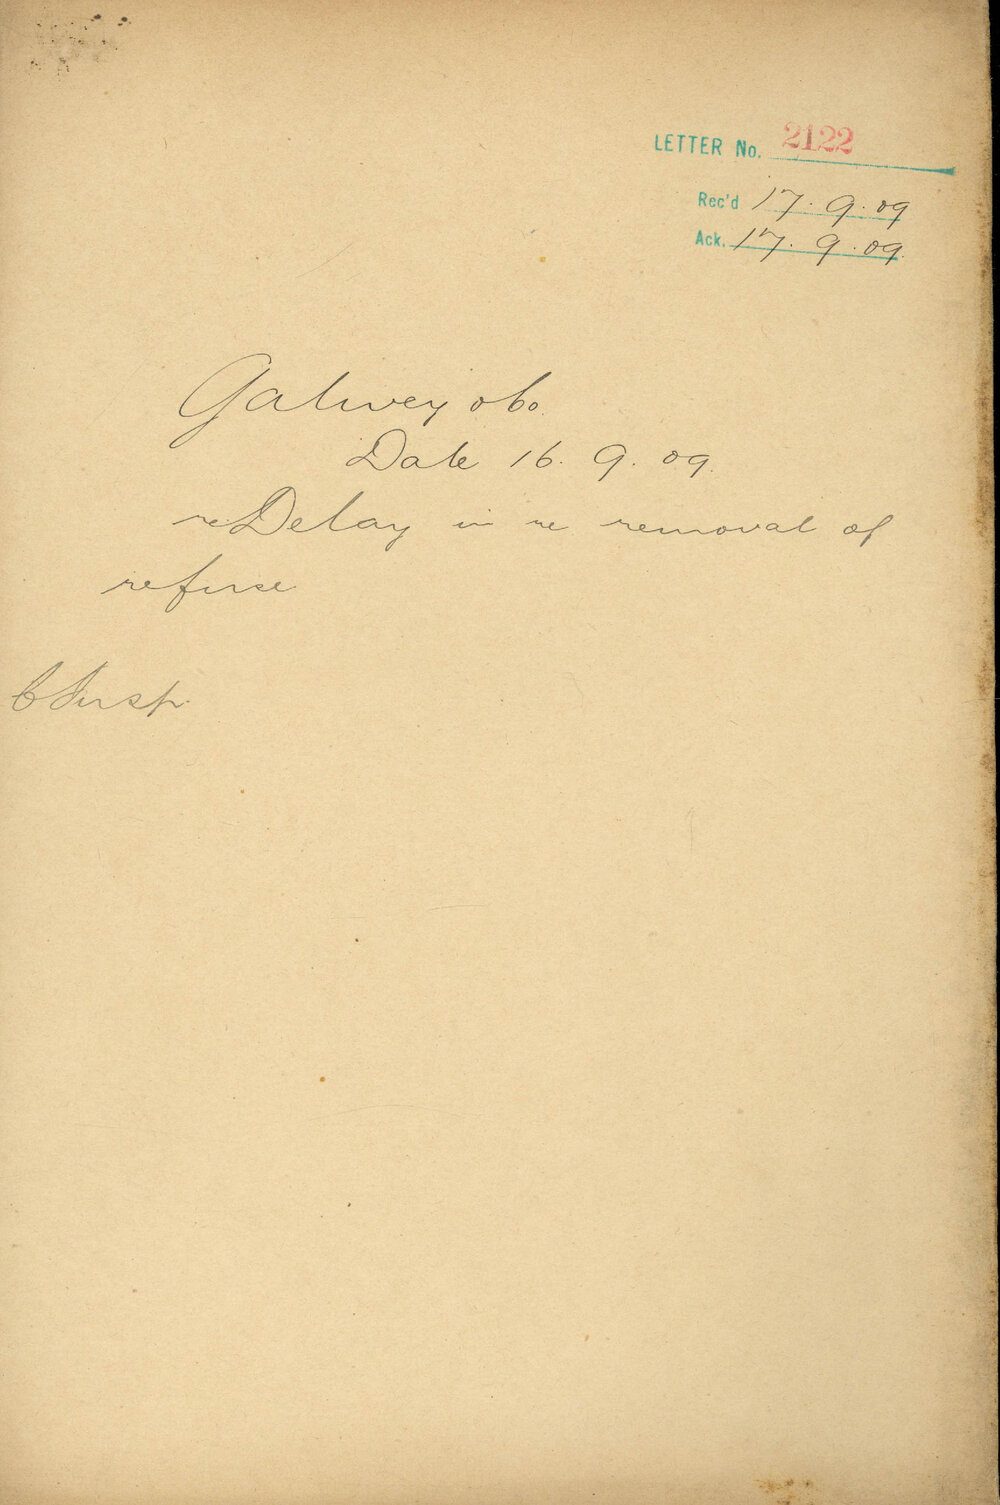 LETTER No. 2122
Rec'd 17.9.09
Ack. 17.9.09
Galwey & Co.
Date 16.9.09
re Delay in re removal of
refuse
C Insp.